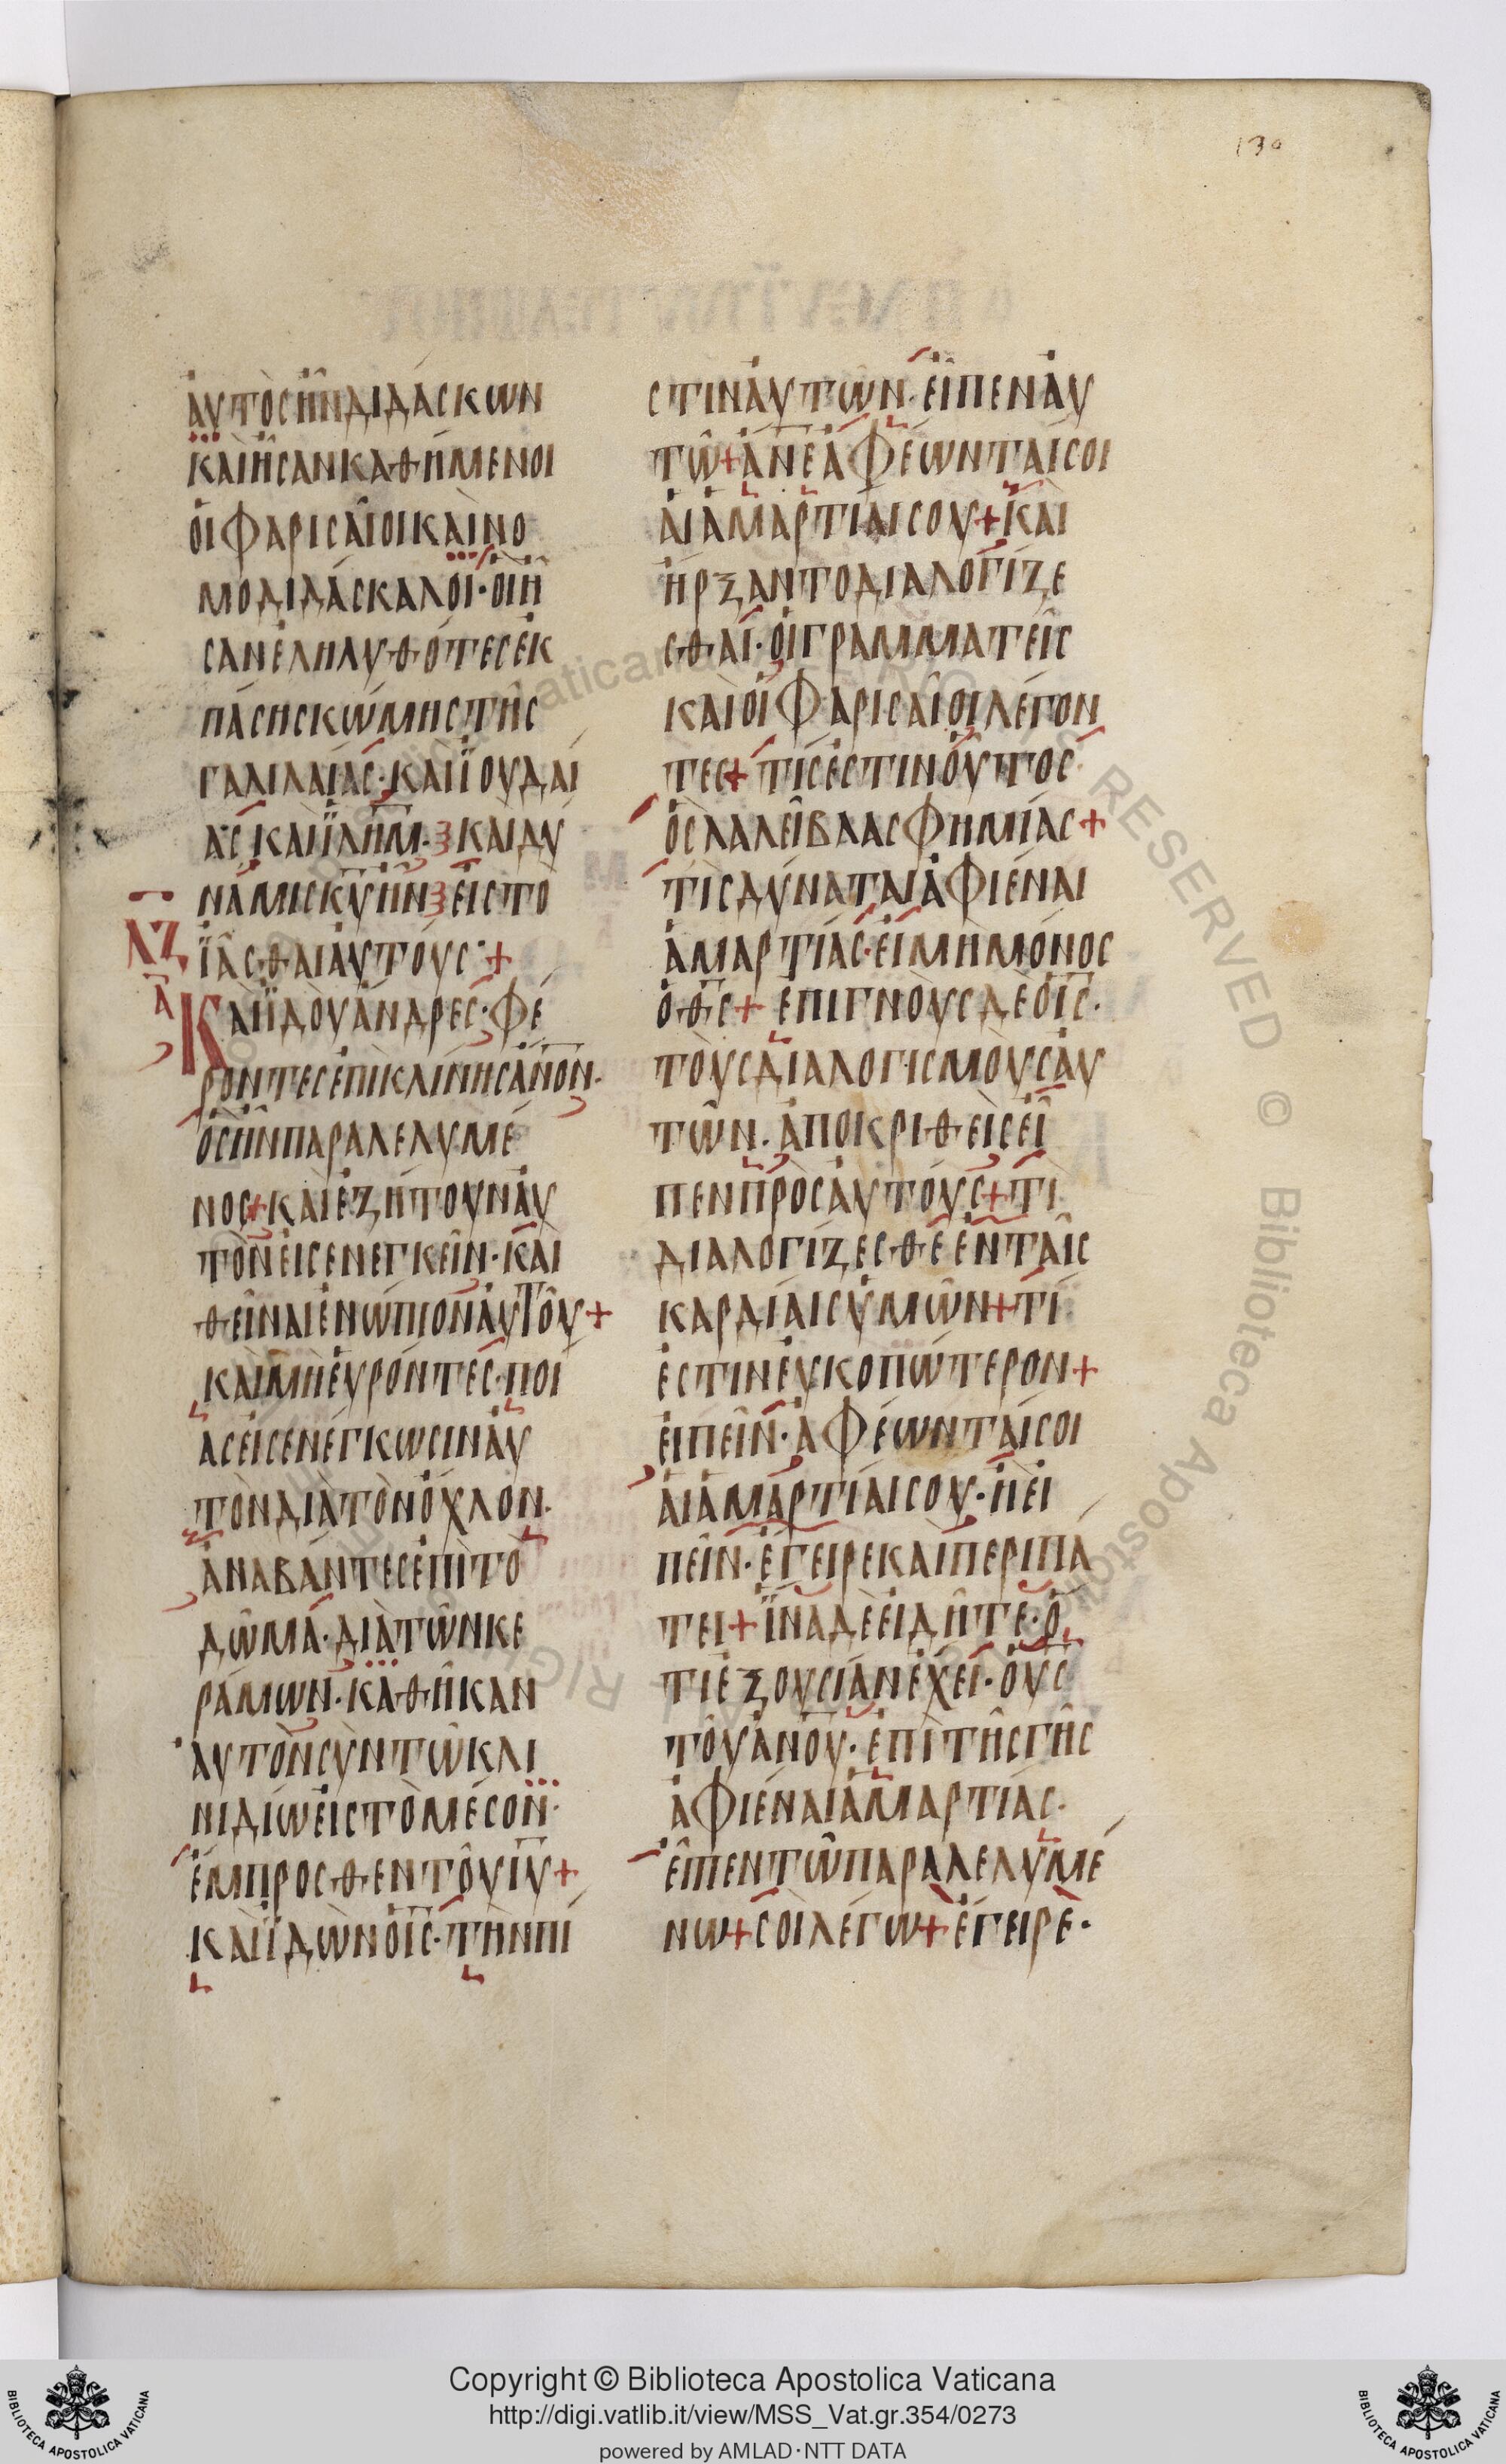 130
ἀυτὸσἦνδιδάσκων
καὶἦσανκαθήμενοι
ὁιφαρισᾶιοικαὶνο
μοδιδάσκαλοι·ὁιἦ
σανἐληλυθότεσἐκ
πάσησκώμηστῆσ
γαλιλαίασ·καὶϊουδαί
ασκαὶϊλημ·καιδύ
ναμισκυἦνεἰστὸ
ϊᾶσθαιἀυτούσ·+
ΛΖ
Α
Καὶϊδοὺἄνδρεσ·φέ
ροντεσἐπὶκλίνησἀνον·
ὃσἦνπαραλελυμέ
νοσ+καὶἐζήτουνἀυ
τὸνεἰσενεγκεῖν·καὶ
θεῖναιἐνώπιονἀυτοῦ+
καὶμὴἑυρόντεσ·ποί
ασεἰσενέγκωσινἀυ
τὸνδιὰτὸνὄχλον·
ἀναβάντεσἐπὶτὸ
δῶμα·διὰτῶνκε
ράμων·καθῆκαν
ἀυτὸνσὺντῶκλι
νιδίωεἰστὸμέσον·
ἔμπροσθεντοῦιυ+
καὶϊδὼνὁισ·τὴνπί
στινἀυτῶν·εἶπενἀυ
τῶ+ἀνεἀφέωνταίσοι
ἁιἁμαρτίαισου+καὶ
ἤρξαντοδιαλογίζε
σθαι·ὁιγραμματεῖσ
καὶὁιφαρισᾶιοιλέγον
τεσ+τίσἐστινὁῦτοσ·
ὃσλαλεῖβλασφημίασ+
τίσδύναταιἀφιέναι
ἁμαρτίασ·εἰμὴμόνοσ
ὁθσ+ἐπιγνοὺσδὲὁισ·
τοὺσδιαλογισμοὺσἀυ
τῶν·ἀποκριθεὶσεἶ
πενπρὸσἀυτούσ+τί
διαλογίζεσθεἐνταῖσ
καρδίαισὑμῶν+τί
ἐστινἐυκοπώτερον+
εἰπεῖν·ἀφέωνταίσοι
ἁιἁμαρτίαισου·ἢεἰ
πεῖν·ἔγειρεκαὶπεριπά
τει+ϊναδὲεἰδῆτε·ὅ
τιἐξουσίανἔχει·ὁυσ
τοῦἀνου·ἐπὶτῆσγῆσ
ἀφιέναιἁμαρτίασ·
εἶπεντῶπαραλελυμέ
νω+σοὶλέγω+ἔγειρε·
Copyright © Biblioteca Apostolica Vaticana
http://digi.vatlib.it/view/MSS_Vat.gr.354/0273
powered by AMLAD·NTT DATA
BIBLIOTECA APOSTOLICA VATICANA
BIBLIOTECA APOSTOLICA VATICANA